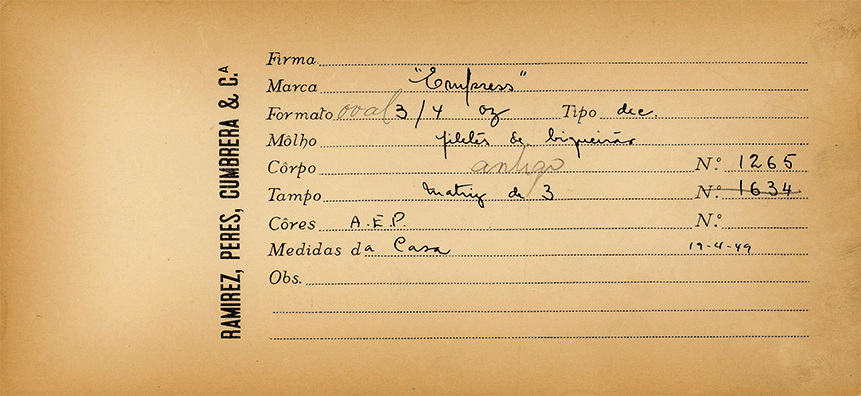 RAMIREZ, PERES, CUMBRERA & C.ª
Firma
Marca "Empress"
Formato oval 3/4 oz Tipo dec.
Môlho filetes de biqueirão
Côrpo antigo N.º 1265
Tampo Matriz de 3 N.º 1634
Côres A.E.P. N.º
Medidas da Casa 19-4-49
Obs.